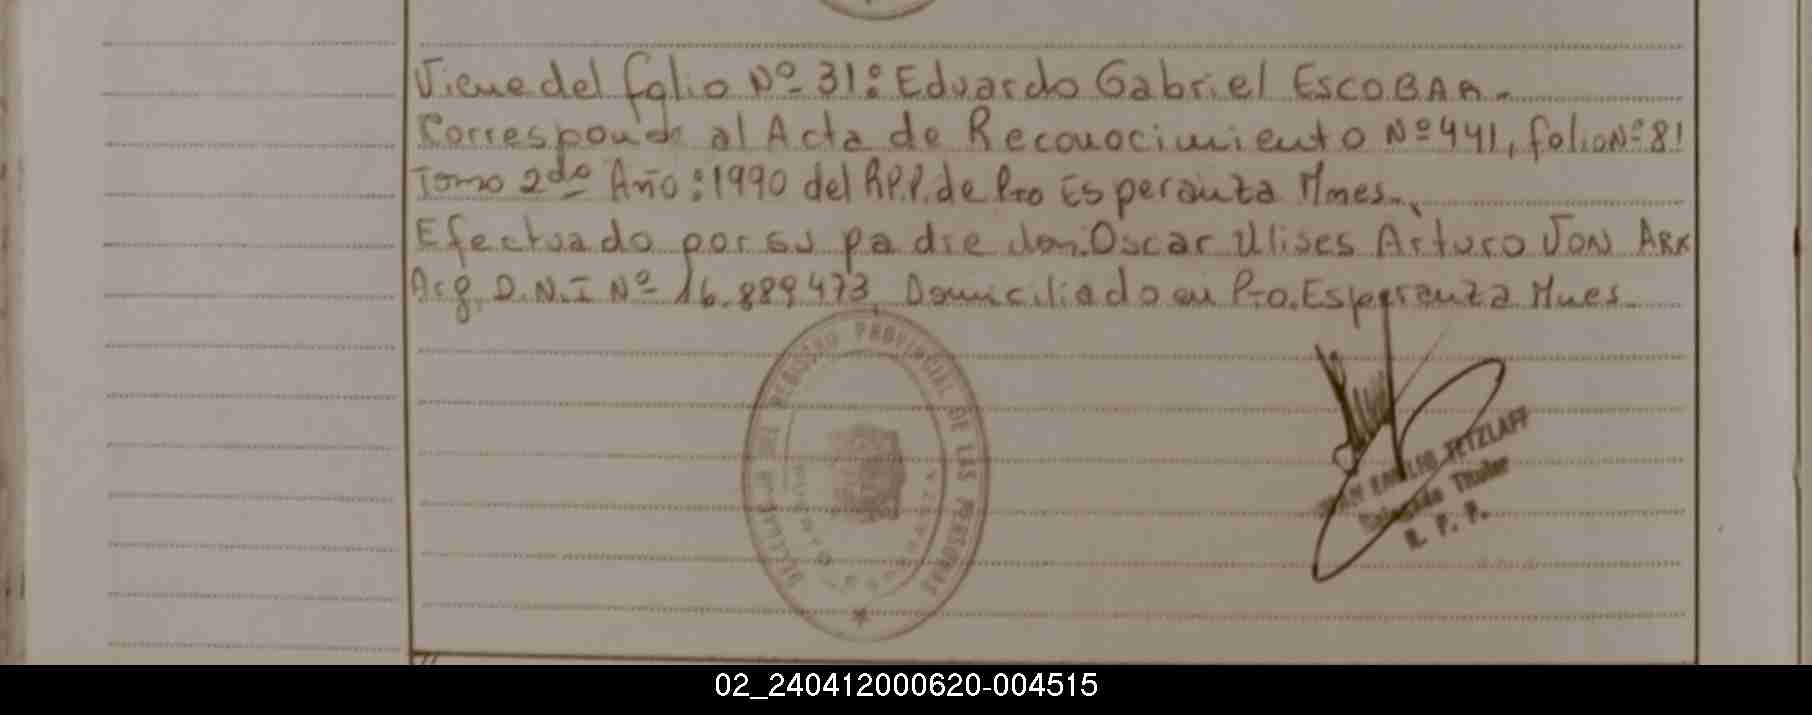 Viene del folio Nº 31: Eduardo Gabriel ESCOBAR.-
Corresponde al Acta de Reconocimiento Nº 441, folio Nº 81
Tomo 2do Año: 1990 del R.P.P. de Pto Esperanza Mnes.-
Efectuado por su padre don: Oscar Ulises Arturo VON ARX
Arg. D.N.I Nº 16.889473, Domiciliado en Pto. Esperanza Mnes.
REGISTRO PROVINCIAL DE LAS PERSONAS
PUERTO ESPERANZA
EMILIO TETZLAFF
Delegado Titular
R. P. P.
02_240412000620-004515